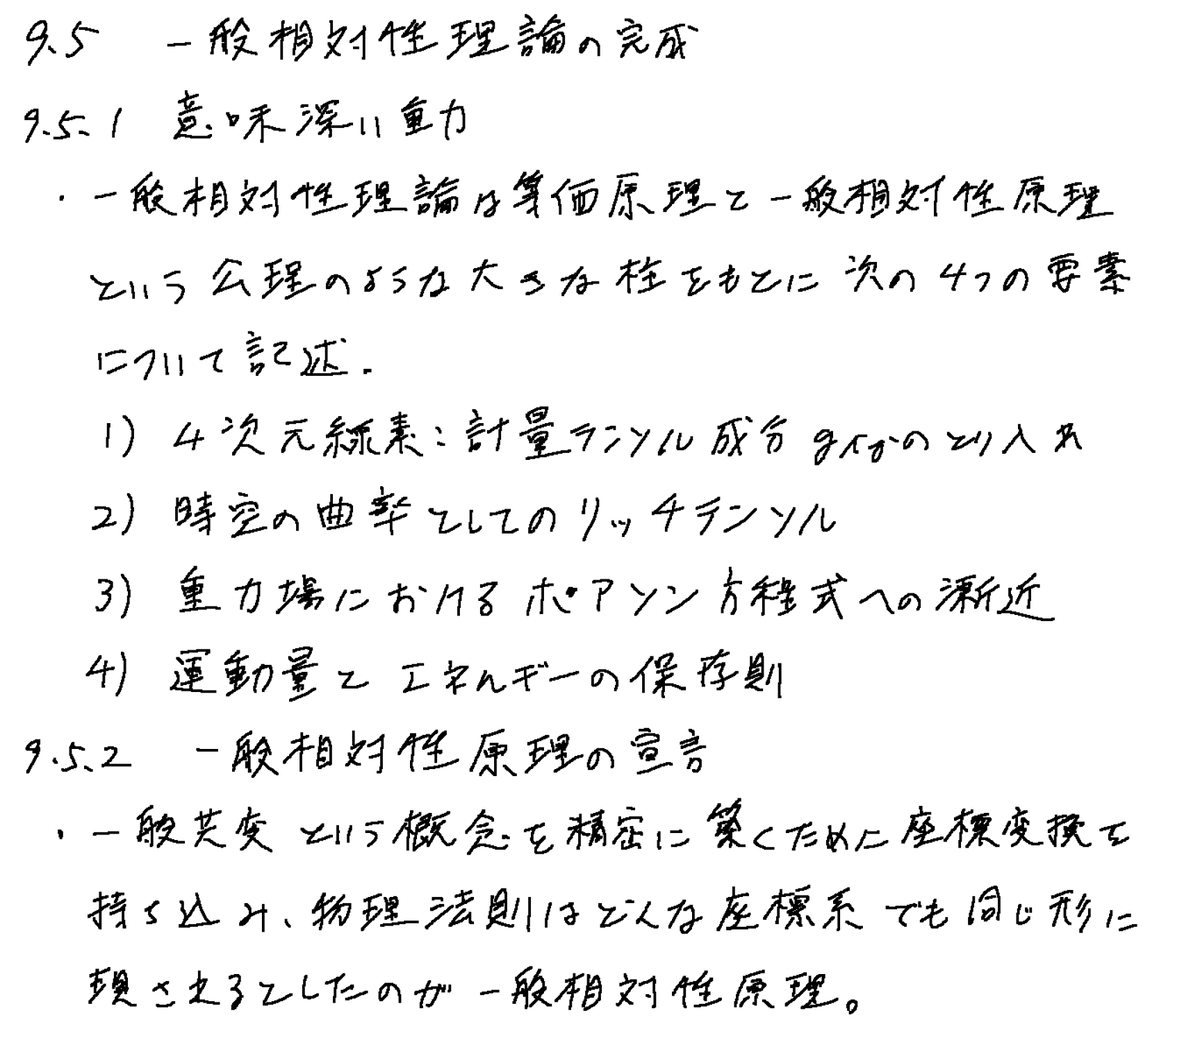 9.5 一般相対性理論の完成
9.5.1 意味深い重力
・一般相対性理論は等価原理と一般相対性原理
という公理のような大きな柱をもとに次の4つの要素
について記述.
1) 4次元線素:計量テンソル成分gijのとり入れ
2) 時空の曲率としてのリッチテンソル
3) 重力場におけるポアソン方程式への漸近
4) 運動量とエネルギーの保存則
9.5.2 一般相対性原理の宣言
・一般共変という概念を精密に築くために座標変換を
持ち込み、物理法則はどんな座標系でも同じ形に
現されるとしたのが一般相対性原理。